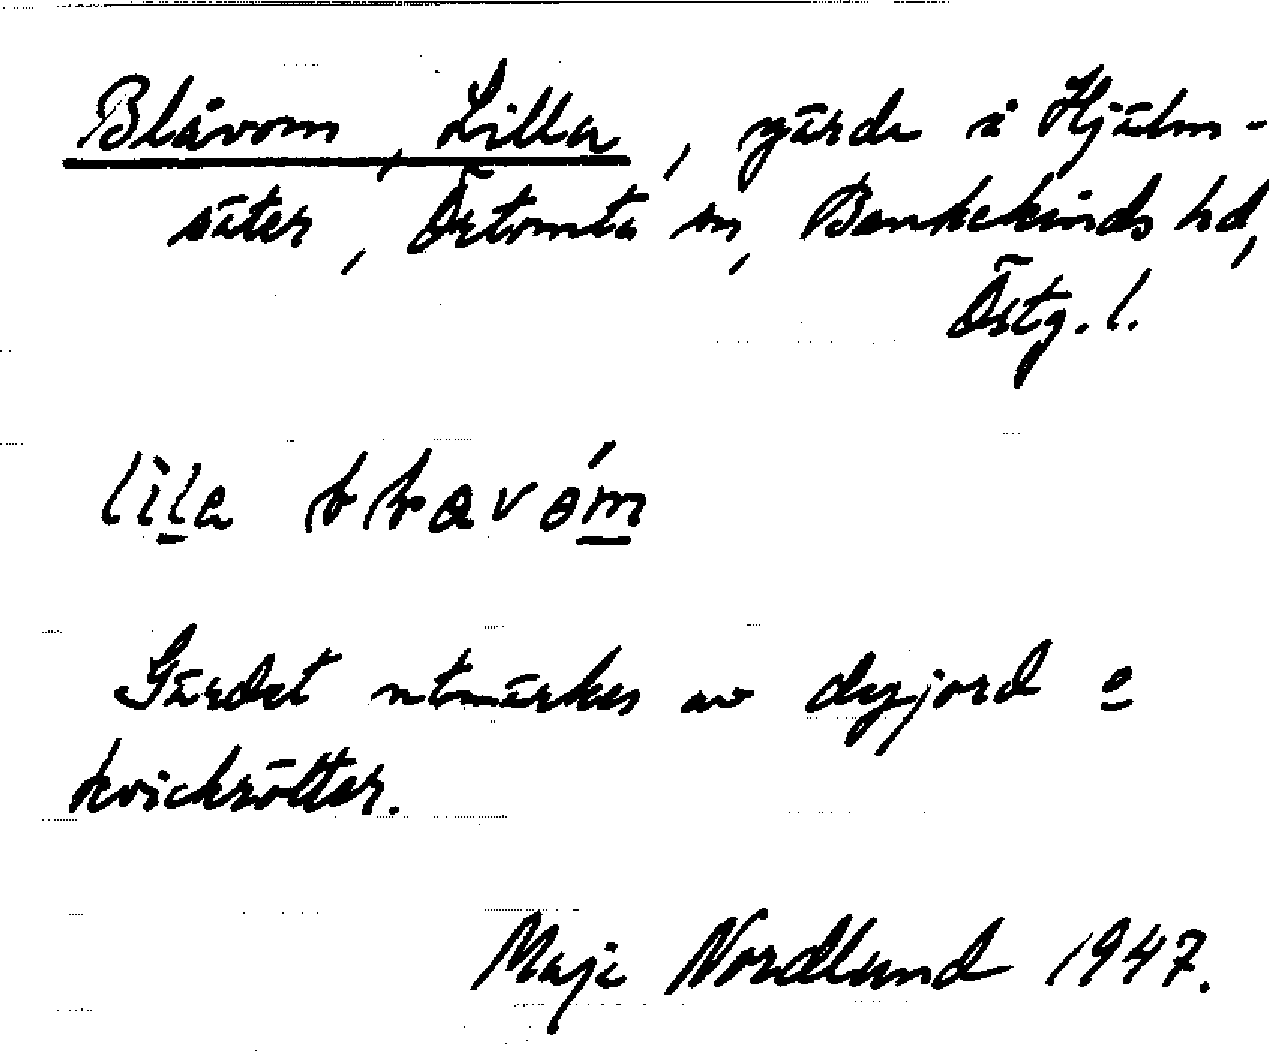 Blåvom, Lilla, gärde i Hjälm-
säter, Örtomta sn, Bankekinds hd,
Östg. l.
Gärdet utmärkes av dyjord o
kvickrötter.
Maja Nordlund 1947.